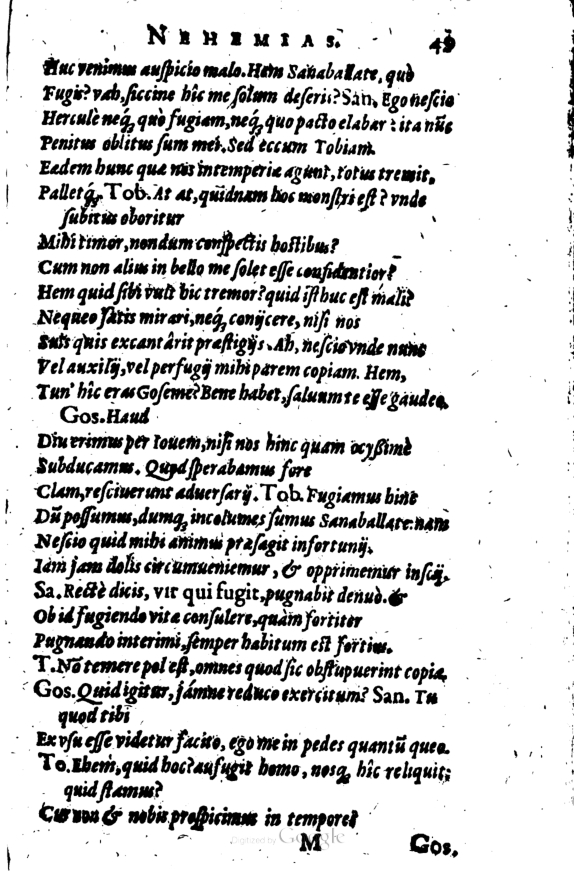 NEHEMIAS. 49
Huc venimus auſpicio malo. Hem Sanaballate, quò
Fugis? vah, ſiccine hîc me ſolum deſeris? San. Ego neſcio
Herculè neq́; quò fugiam, neq́; quo pacto elabar: ita nũc
Penitus oblitus ſum mei. Sed eccum Tobiam.
Eadem hunc quæ nos intemperiæ agunt, totus tremit,
Palletq́;. Tob. At at, quidnam hoc monſtri eſt? vnde
ſubitus oboritur
Mihi timor, nondum conſpectis hoſtibus?
Cum non alius in bello me ſolet eſſe confidentior?
Hem quid ſibi vult hic tremor? quid iſthuc eſt mali?
Nequeo ſatis mirari, neq́; conijcere, niſi nos
Suis quis excantârit præſtigijs. Ah, neſcio vnde nunc
Vel auxilij, vel perfugij mihi parem copiam. Hem,
Tun' hîc eras Goſeme? Bene habet, ſaluum te eſſe gaudeo.
Gos. Haud
Diu erimus per Iouem, niſi nos hinc quam ocyßimè
Subducamus. Quod ſperabamus fore
Clam, reſciuerunt aduerſarij. Tob. Fugiamus hinc
Dũ poſſumus, dumq́; incolumes ſumus Sanaballate: nam
Neſcio quid mihi animus præſagit infortunij.
Iam jam dolis circumueniemur, & opprimemur inſcij.
Sa. Rectè dicis, vir qui fugit, pugnabit denuò. &
Ob id fugiendo vitæ conſulere, quàm fortiter
Pugnando interimi, ſemper habitum eſt fortius.
T. Nõ temere pol eſt, omnes quod ſic obſtupuerint copiæ.
Gos. Quid igitur, jámne reduco exercitum? San. Tu
quod tibi
Ex vſu eſſe videtur facito, ego me in pedes quantũ queo.
To. Ehem, quid hoc? aufugit homo, nosq́; hîc reliquit:
quid ſtamus?
Cur non & nobis proſpicimus in tempore?
Digitized by Google
M Gos.